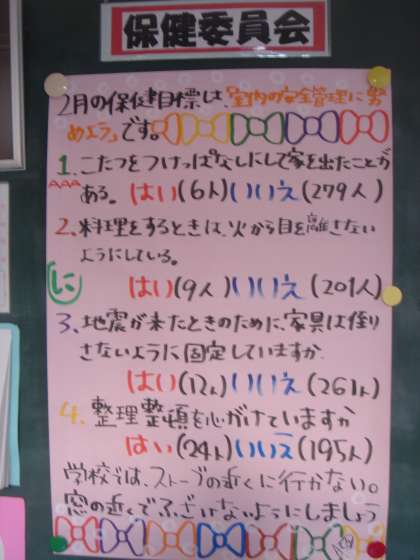 保健委員会
2月の保健目標は、「室内の安全管理に努
めよう」です。
1. こたつをつけっぱなしにして家を出たことが
ある。はい(6人)いいえ(279人)
2. 料理をするときは、火から目を離さない
ようにしている。
に
はい(9人)いいえ(201人)
3. 地震が来たときのために、家具は倒り
さないように固定していますか
はい(12人)いいえ(261人)
4. 整理整頓を心がけていますか
はい(24人)いいえ(195人)
学校では、ストーブの近くに行かない。
窓の近くでふざいないようにしましょう